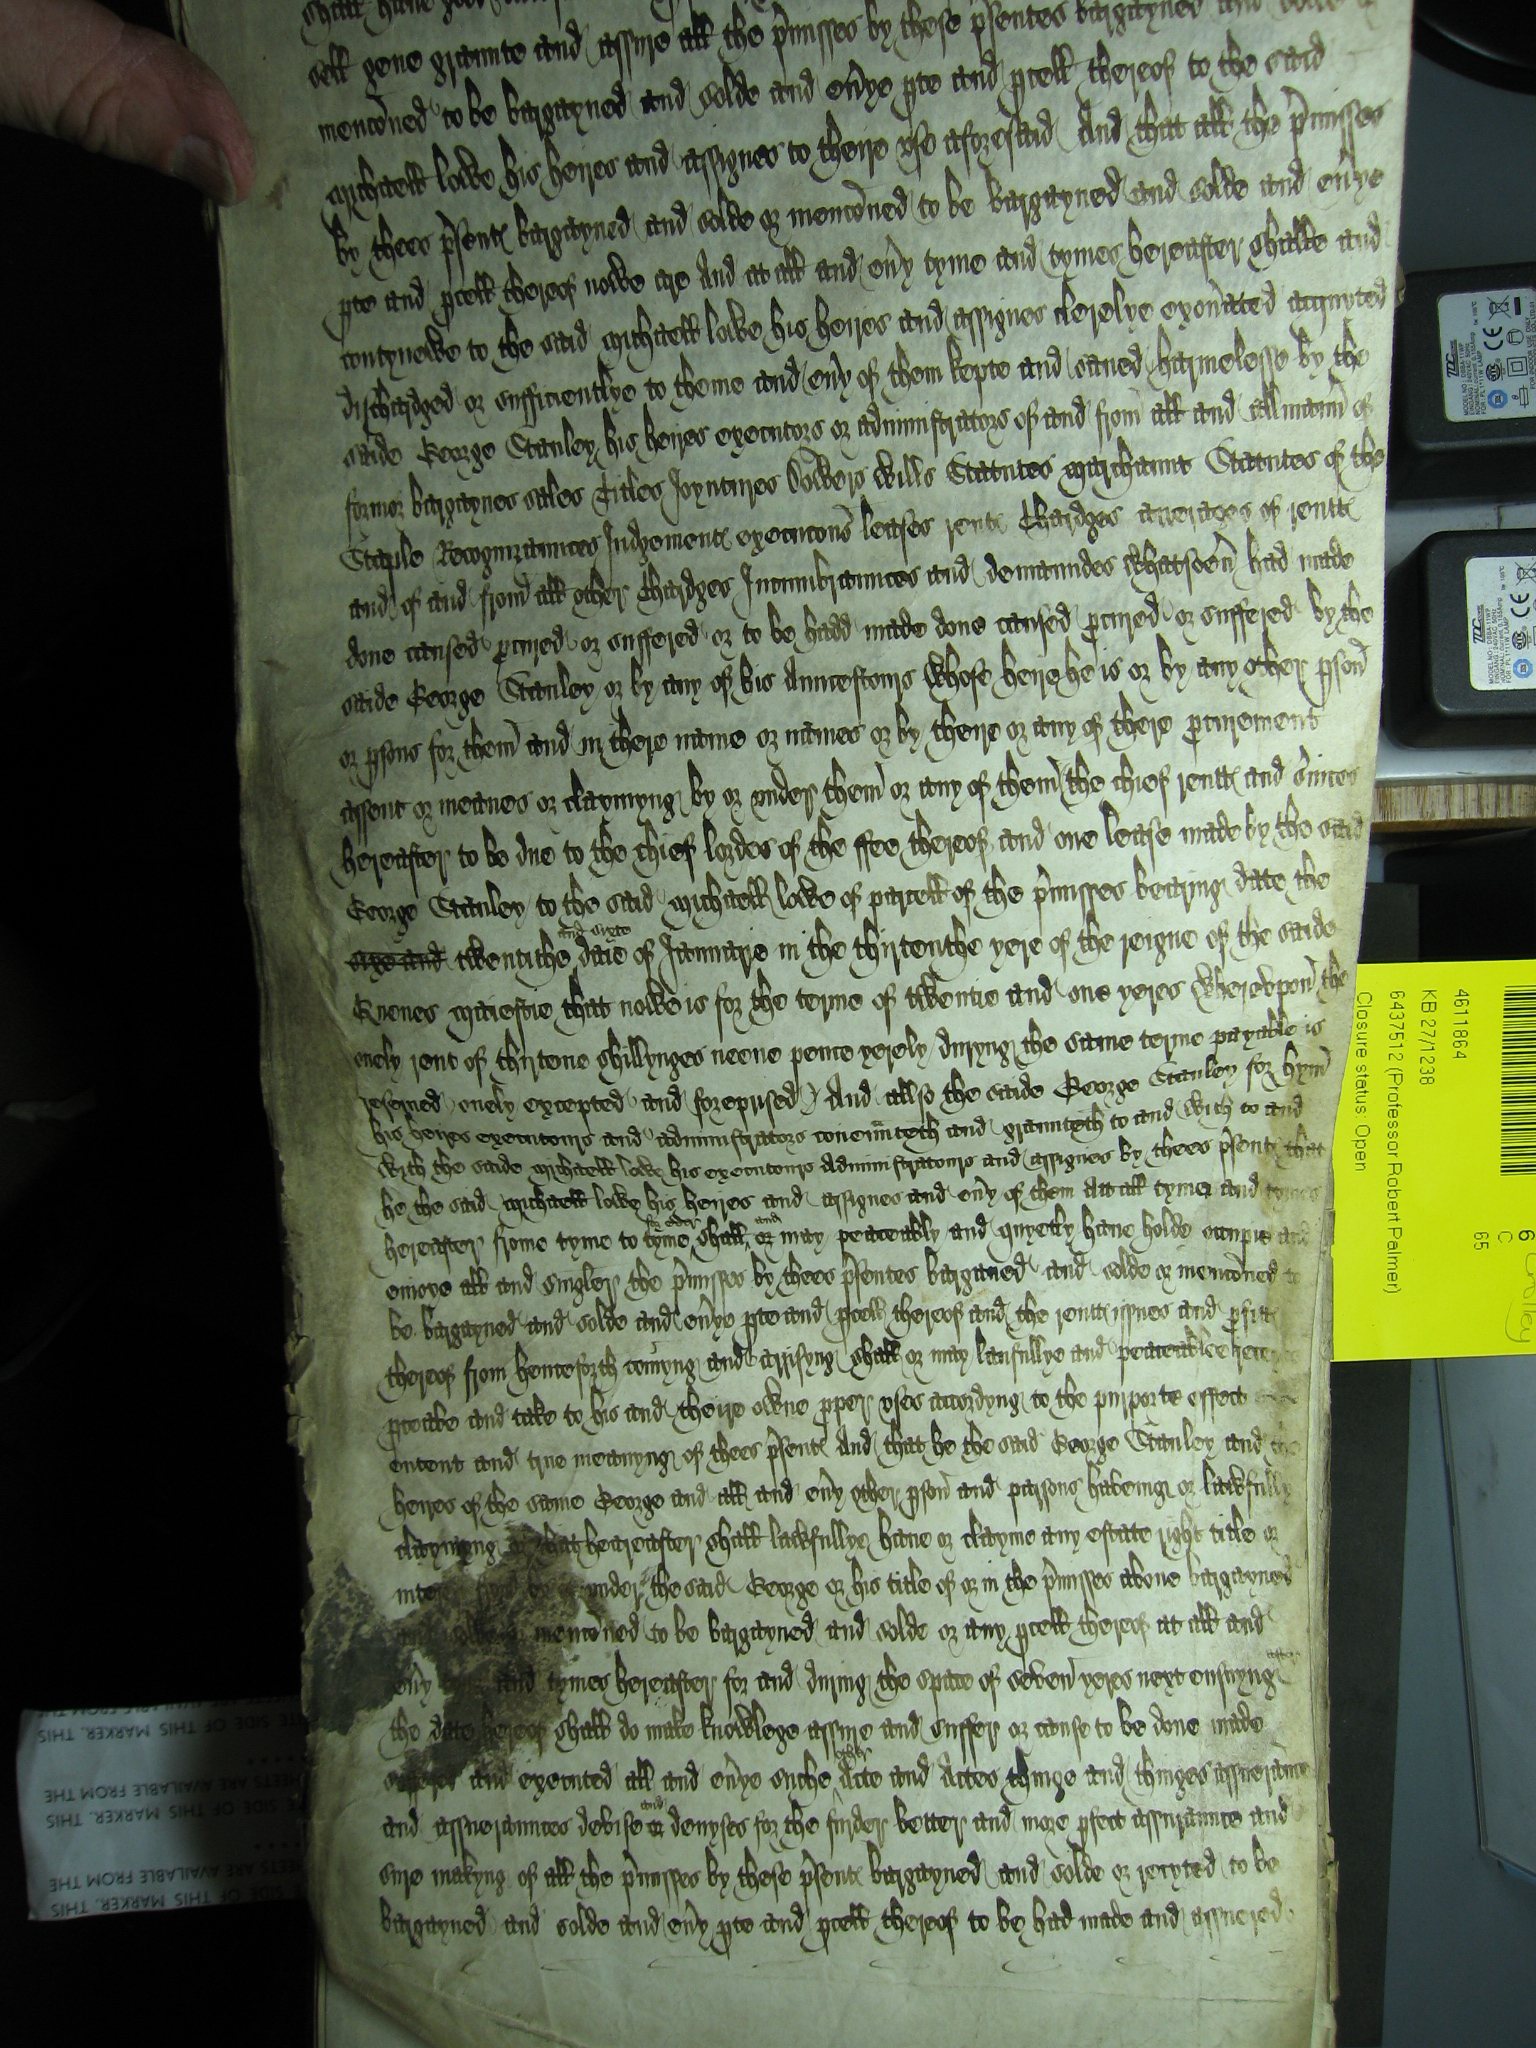 shall haue
sell geue graunte and assure all the p'misses by these p'sentes bargayned and solde or
menc'oned to be bargayned and solde and eu'ye p'te and p'cell thereof to the said
Michaell Lowe his heires and assignes to theire vse aforesaid And that all the p'misses
by thees p'sent' bargayned and solde or menc'oned to be bargayned and solde and eu'ye
p'te and p'cell thereof nowe are And at all and eu'y tyme and tymes hereafter shalbe and
contynewe to the said Michaell Lowe his heires and assignes clerelye exon'ated acquyted
dischardged or sufficientlye to theme and eu'y of them kepte and saued harmelesse by the
saide George Stanley his heires executors or administrators of and from all and all man' of
former bargaynes sales Titles Joyntures Dowers Wills Statutes Marchaunt Statutes of the
Staple Recognizaunces Judgement' execuc'ons leases rent' Chardges arrerages of rent'
and of and from all other Chardges Incumbraunces and demaundes whatsoeu' had made
done caused p'cured or suffered or to be hadd made done caused p'cured or suffered by the
saide George Stanley or by any of his Auncestours whose heire he is or by any other p'son
or p'sons for them and in there name or names or by theire or any of there p'curement
assent or meanes or claymyng by or vnder them or any of them the chief rent' and s'uices
hereafter to be due to the chief lordes of the ffee thereof and one lease made by the said
George Stanley to the said Michaell Lowe of parcell of the p'misses bearing date the
sixe and twentithe and sixte daie of Januarie in the thirtenthe yere of the reigne of the saide
Quenes Maiestie that nowe is for the terme of twentie and one yeres Wherevpon the
onely rent of thirtene shillynges neene pence yerely duryng the same terme payable is
reserued onely excepted and foreprised) And allso the saide George Stanley for hym
his heires executours and administrators couen'nteth and graunteth to and with to and
with the saide Michaell Lowe his executours Administratours and assignes by thees p'sent' that
he the said Michaell Lowe his heires and assignes and eu'y of them At all tymes and tymes
hereafter frome tyme to tyme for euer shall or and may peaceably and quyetly haue holde occupie and
enioye all and singler the p'misses by thees p'sentes bargained and solde or menc'oned to
be bargayned and solde and eu'ye p'te and p'cell thereof and the rent' issues and p'fitt'
thereof from henceforth comyng and arrisyng shall or may laufullye and peaceablee receyue
p'ceiue and take to his and theire owne p'per vses accordyng to the purporte effect
entent and true meanyng of thees p'sent' And that he the said George Stanley and the
heires of the same George and all and eu'y other p'son and parsons haueing or lawfully
claymyng or that hereafter shall lawfullye haue or clayme any estate right title or
under the said George or his title of or in the p'misses aboue bargayned
menc'oned to be bargayned and solde or any p'cell thereof at all and
eu'y and tymes hereafter for and during the space of seuen yeres next ensuyng after
the date hereof shall do make knowlege assure and suffer or cause to be done made
and executed all and eu'ye suche other Acte and Actes thinge and thinges assueraunce
and assueraunces devise or and devyses for the furder better and more p'fect assuraunce and
sure makyng of all the p'misses by these p'sent' bargayned and solde or recyted to be
bargayned and solde and eu'y p'te and p'cell thereof to be had made and assuered
4611864
KB 27/1238
6437512 (Professor Robert Palmer)
Closure status: Open
C
65
6